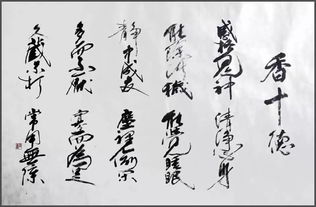 香十德
感格鬼神 清淨心身
能除污穢 能覺睡眠
静中成友 塵裡偷閑
多而不厭 寡而為足
久藏不朽 常用無障